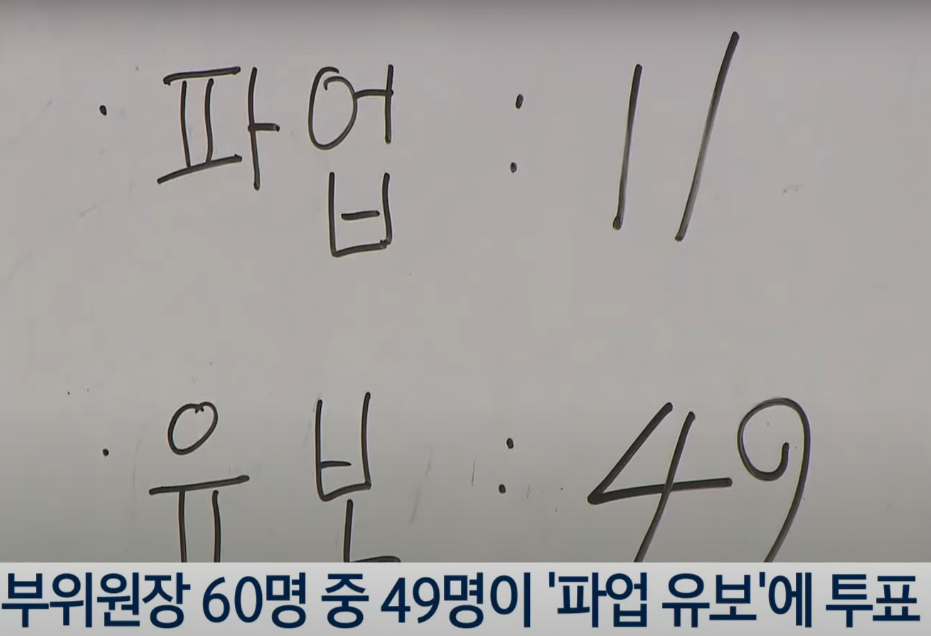 · 파업 : 11
· 유보 : 49
부위원장 60명 중 49명이 '파업 유보'에 투표